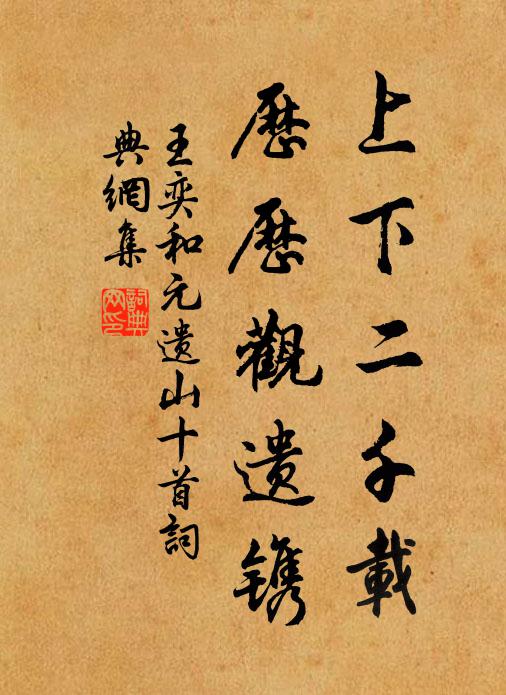 上下二千載
歷歷觀遺镌
王奕和元遺山十首詞
典網集
詞典網印